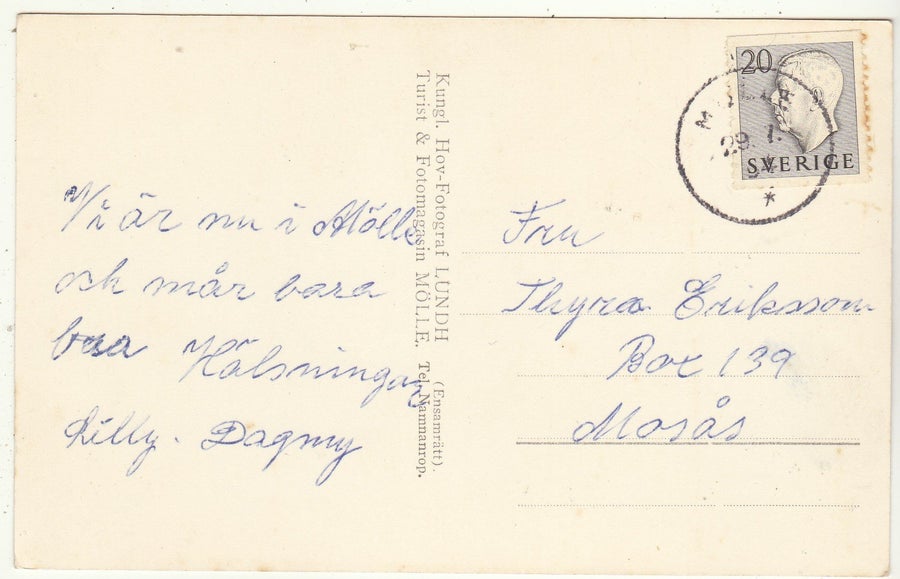 Vi är nu i Mölle
och mår bara
bra Hälsningar
Lilly. Dagmy
Kungl. Hov-Fotograf LUNDH (Ensamrätt).
Turist & Fotomagasin MÖLLE. Tel. Namnanrop.
20
SVERIGE
29. 1.
Fru
Thyra Eriksson
Box 139
Mosås